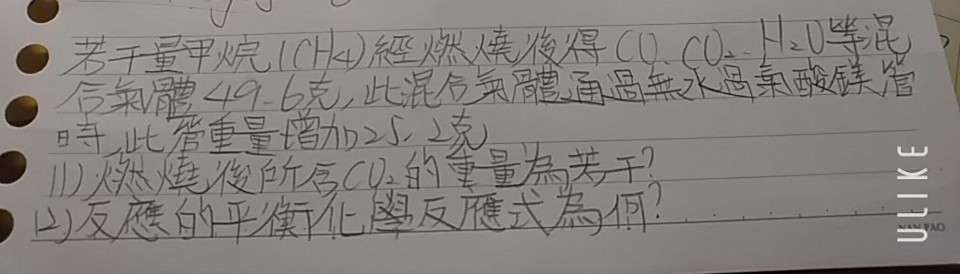 若干量甲烷(CH4)經燃燒後得CO、CO2、H2O等混
合氣體49.6克,此混合氣體通過無水過氯酸鎂管
時,此管重量增加25.2克
(1)燃燒後所含CO2的重量為若干?
(2)反應的平衡化學反應式為何?
ULIKE
NAN PAO